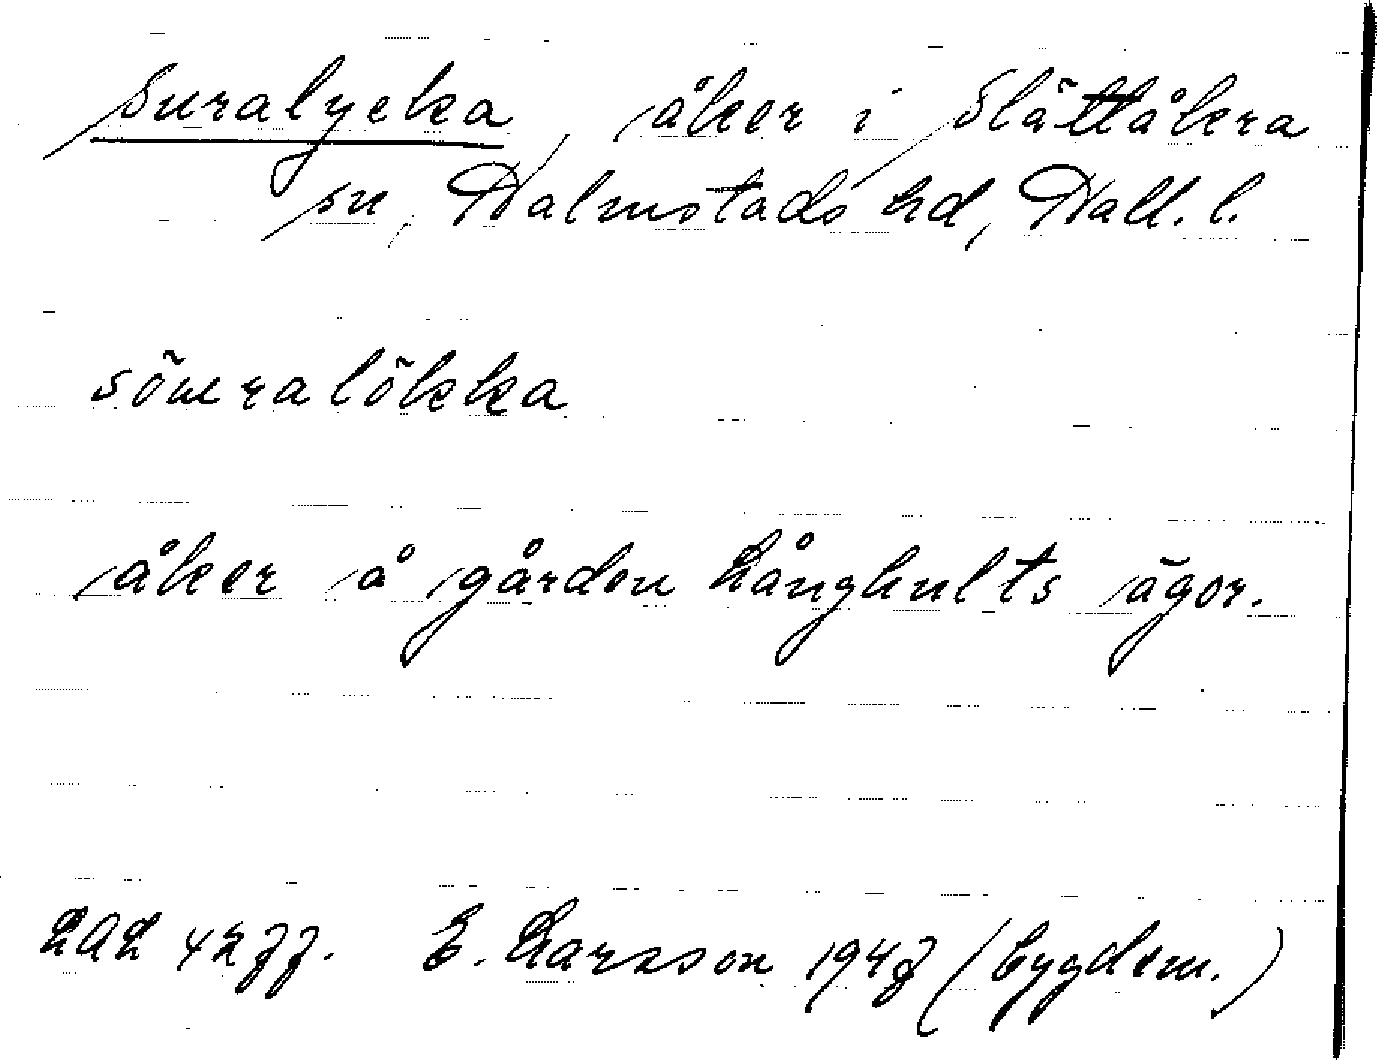 Suralycka, åker i Slättåkra
sn, Halmstads hd, Hall. l.
sömralökka
åker å gården Långhults ägor.
LAL 4277. E. Larsson 1947 (bygdem.)